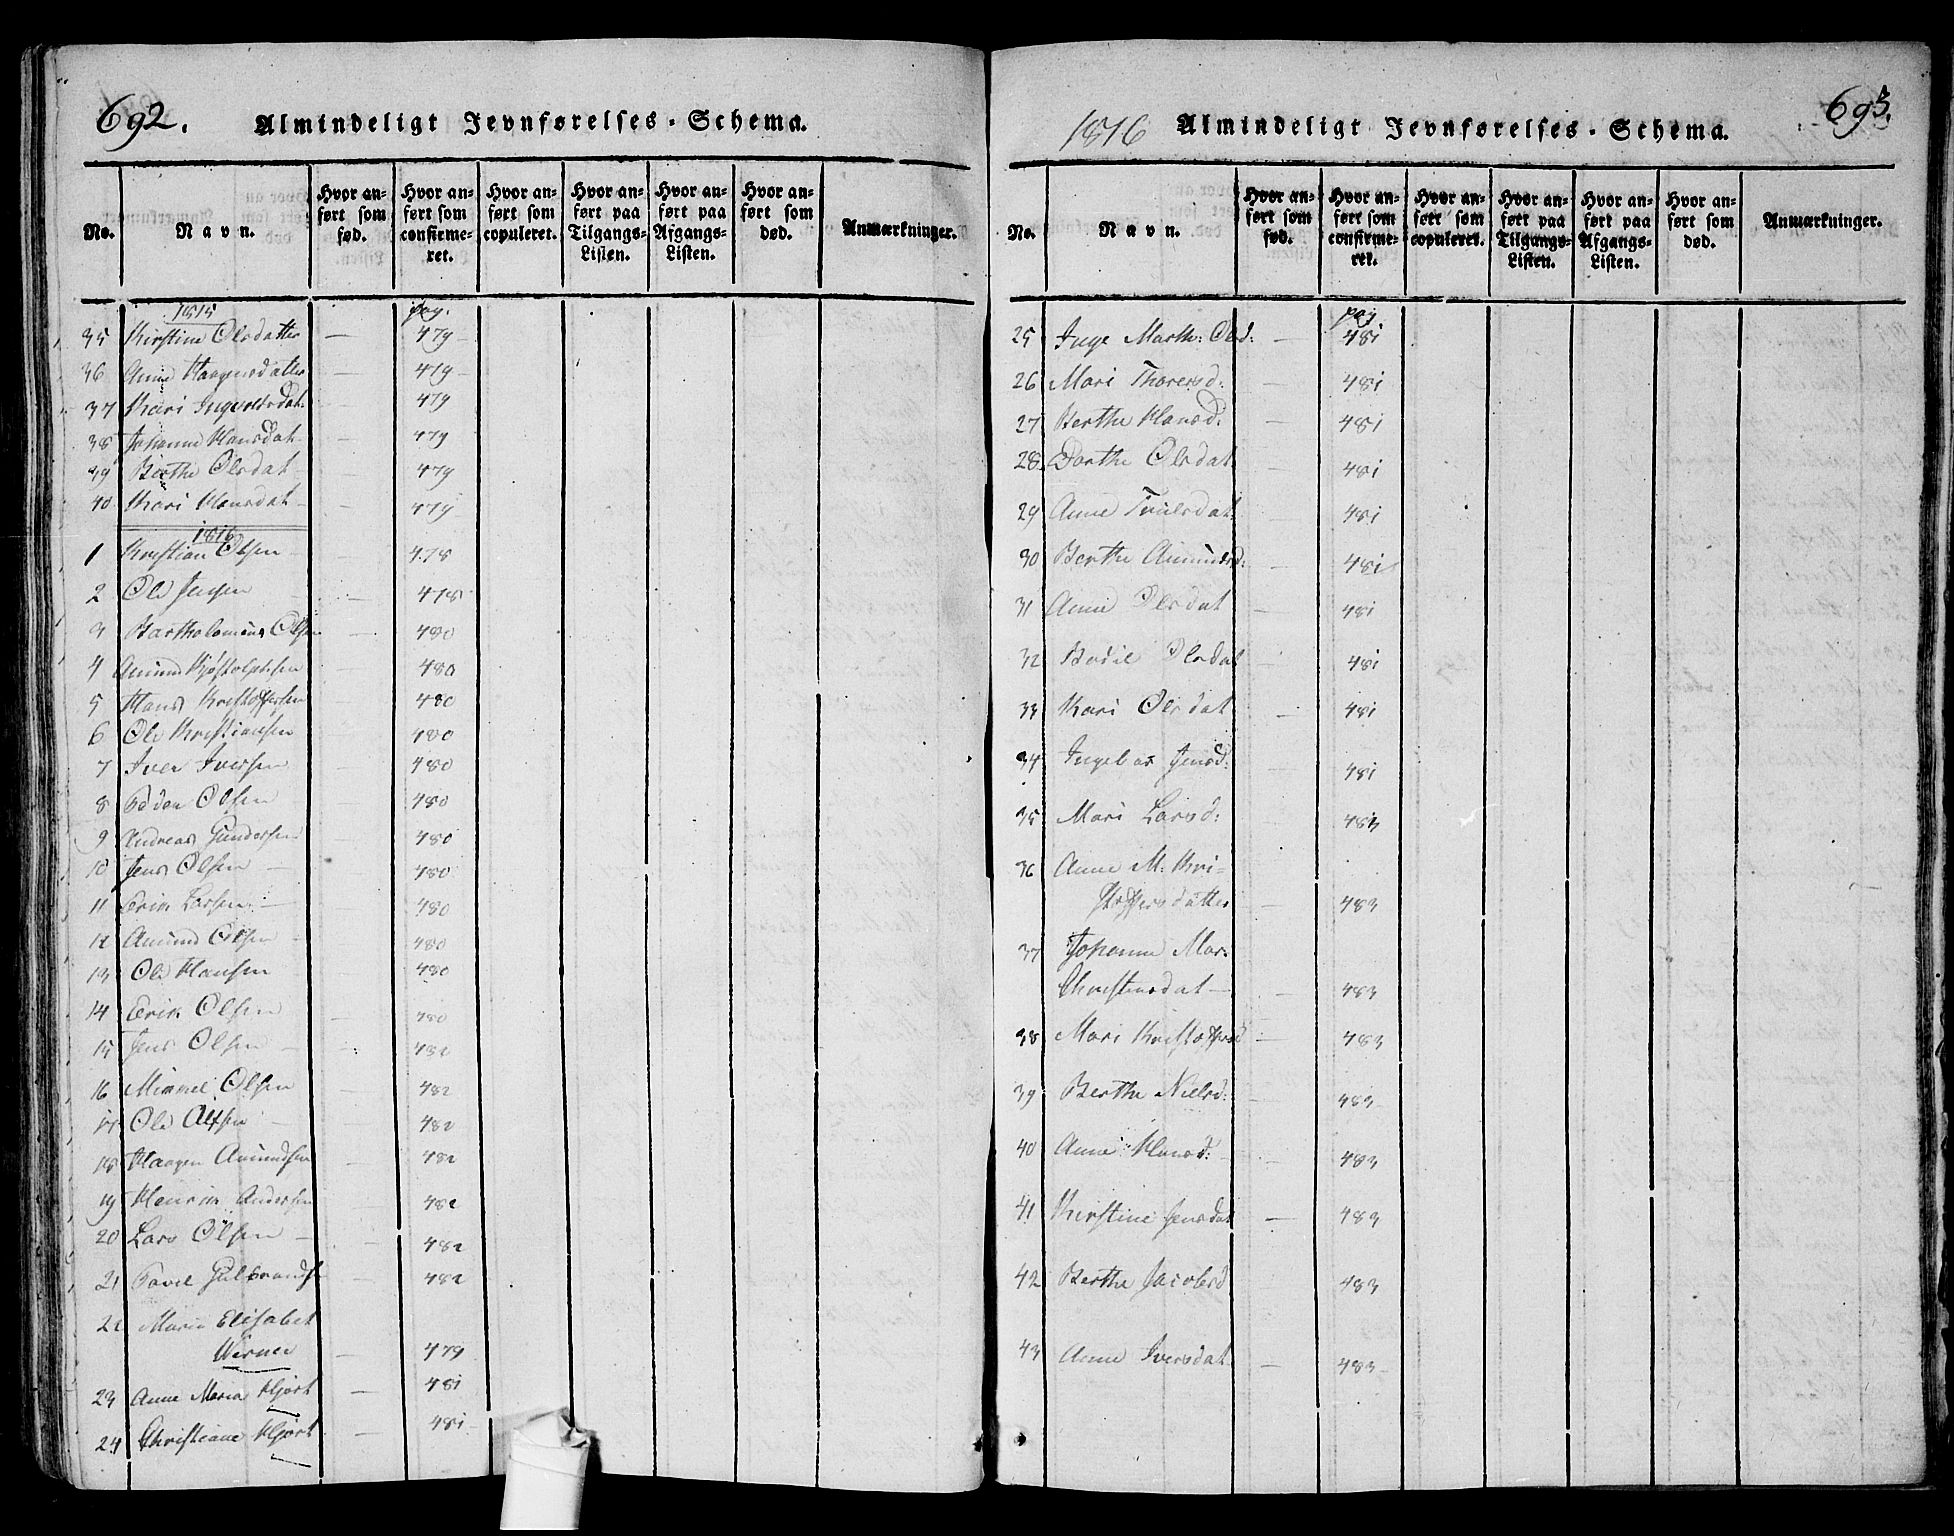 692.
Almindeligt Jevnførelses-Schema.
No.
Navn.
Hvor anført som fød.
Hvor anført som confirmeret.
Hvor anført som copuleret.
Hvor anført paa Tilgangs-Listen.
Hvor anført paa Afgangs-Listen.
Hvor anført som død.
Anmærkninger.
1815 pag.
35 Kirstine Olsdatter — 479
36 Anne Haagensdatter — 479
37 Kari Ingvoldsdat. — 479
38 Johanne Hansdat — 479
39 Berthe Olsdat — 479
40 Kari Hansdat — 479
1816
1 Kristian Olsen — 478
2 Ole Jensen — 478
3 Bartholomeus Olsen — 480
4 Amund — 480
5 Hans Kristoffersen — 480
6 Ole Kristiansen — 480
7 Iver Iversen — 480
8 Peder Olsen — 480
9 Andreas Gundersen — 480
10 Jens Olsen — 480
11 Erik Larsen — 480
12 Amund Olsen — 480
13 Ole Hansen — 480
14 Erik Olsen — 480
15 Jens Olsen — 482
16 Mikkel Olsen — 482
17 Ole Olsen — 482
18 Haagen Amundsen — 482
19 Henrik Andersen — 482
20 Lars Olsen — 482
21 Povel Gulbrands — 482
22 Maria Elisabet
Werner — 479
23 Anne Maria Hjort — 481
24 Christiane Hjort — 481
1816
Almindeligt Jevnførelses-Schema.
693.
No.
Navn.
Hvor anført som fød.
Hvor anført som confirmeret.
Hvor anført som copuleret.
Hvor anført paa Tilgangs-Listen.
Hvor anført paa Afgangs-Listen.
Hvor anført som død.
Anmærkninger.
pag
25 Inge Marth: Olsd: — 481
26 Mari Thorersd: — 481
27 Berthe Hansd: — 481
28 Dorthe Olsdat. — 481
29 Anne Trulsdat. — 481
30 Berthe Amundsd: — 481
31 Anne Olsdat — 481
32 Bodil Olsdat — 481
33 Kari Olsdat — 481
34 Ingebor Jensd: — 481
35 Mari Larsd: — 483
36 Anne M. Kri-
stoffersdatter — 483
37 Johanne Mar.
Christensdat — 483
38 Mari Kristoffersd — 483
39 Berthe Nielsd: — 483
40 Anne Hansd: — 483
41 Kirstine Jensdat — 483
42 Berthe Jacobsd — 483
43 Anne Iversdat. — 483